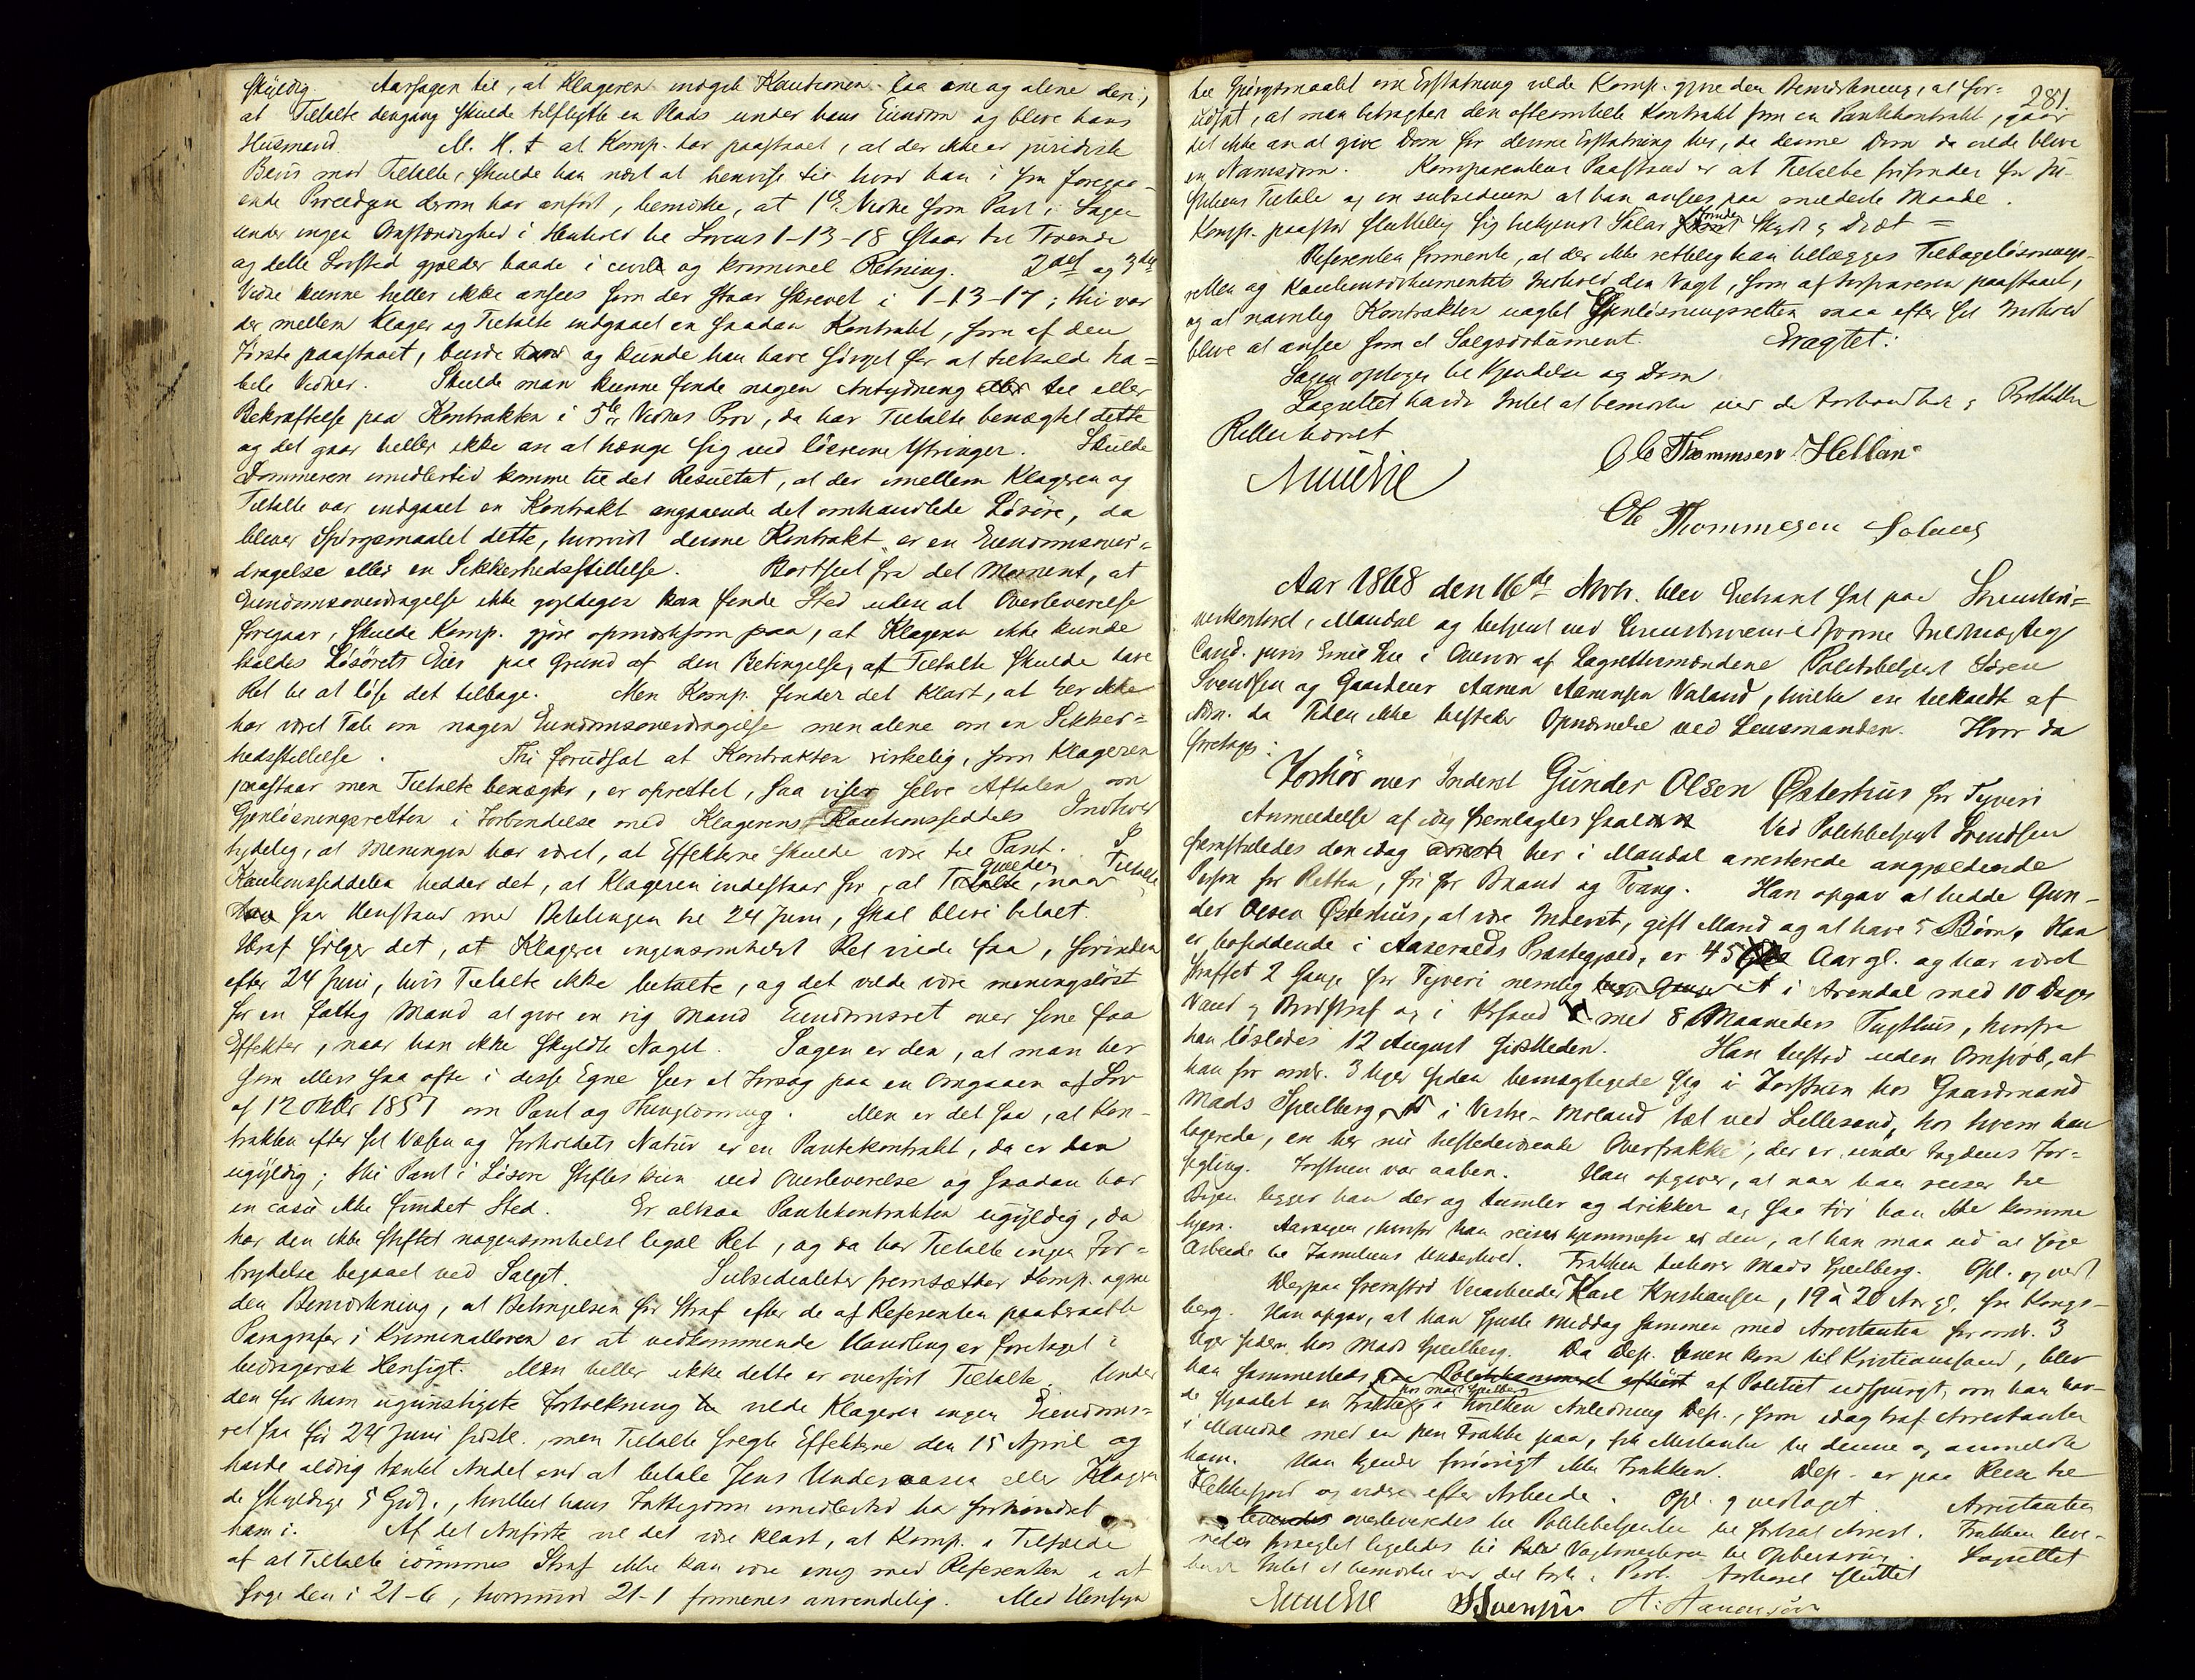 skyldig. Aarsagen til, at Klageren indgik Kautionen laa ene og alene deri,
at Tiltalte dengang skulde tilflytte en Plads under hans Eiendom og blive hans
Husmand. M. H. t. at Komp. har paastaaet, at der ikke er juridisk
Bevis mod Tiltalte, skulde han next at henvise til hvad han i sin foregaa-
ende Procedure derom har anført, bemærke, at 1ste Vidne som Part i Sagen
under ingen Omstændighed i Henhold til Lovens 1-13-18 staar til Troende
og dette Lovsted gjælder baade i civil og kriminel Retning. 2det og 3die
Vidne kunne heller ikke ansees som der staar skrevet i 1-13-17; thi var
der mellem Klager og Tiltalte indgaaet en saadan Kontrakt, som af den
Første paastaaet, burde og kunde han have sørget for at tilkalde ha-
bile Vidner. Skulde man kunne finde nogen Antydning til eller
Bekræftelse paa Kontrakten i 5te Vidnes Prov, da har Tiltalte benægtet dette
og det gaar heller ikke an at hænge sig ved løsrevne Ytringer. Skulde
Dommeren imidlertid komme til det Resultat, at der imellem Klageren og
Tiltalte var indgaaet en Kontrakt angaaende det omhandlede Løsøre, da
bliver Spørgsmaalet dette, hvorvidt denne Kontrakt er en Eiendomsover-
dragelse eller en Sikkerhedsstillelse. Bortseet fra det Moment, at
Eiendomsoverdragelse ikke gyldigen kan finde Sted uden at Overleverelse
foregaar, skulde Komp. gjøre opmærksom paa, at Klageren ikke kunde
kaldes Løsørets Eier paa Grund af den Betingelse, at Tiltalte skulde have
Ret til at løse det tilbage. Men Komp. finder det klart, at her ikke
har været Tale om nogen Eiendomsoverdragelse men alene om en Sikker-
hedsstillelse. Thi forudsat at Kontrakten virkelig, som Klageren
paastaar men Tiltalte benægter, er oprettet, saa viser selve Aftalen om
Gjenløsningsretten i Forbindelse med Klagerens Kautionsseddels Indhold
tydelig, at Meningen har været, at Effekterne skulde være til Pant. I
Kautionsseddelen hedder det, at Klageren indestaar for, at Gjælden, naar Tiltalte
faar Henstand med Betalingen til 24 Juni, skal blive betalt.
Heraf følger det, at Klageren ingensomhelst Ret vilde faa, førinden
efter 24 Juni, hvis Tiltalte ikke betalte, og det vilde være meningsløst
for en fattig Mand at give en rig Mand Eiendomsret over sine faa
Effekter, naar han ikke skyldte Noget. Sagen er den, at man her
som ellers saa ofte i disse Egne seer et Forsøg paa en Omgaaen af Lov
af 12 Oktbr 1857 om Pant og Thinglæsning. Men er det saa, at Kon-
trakten efter sit Væsen og Forholdets Natur er en Pantekontrakt, da er den
ugyldig; thi Pant i Løsøre stiftes kun ved Overleverelse og saadan har
in casu ikke fundet Sted. Er altsaa Pantekontrakten ugyldig, da
har den ikke stiftet nogensomhelst legal Ret, og da har Tiltalte ingen For-
brydelse begaaet ved Salget. Subsidialiter fremsætter Komp. ogsaa
den Bemærkning, at Betingelsen for Straf efter de af Referenten paaberaabte
Paragrafer i Kriminalloven er at vedkommende Handling er foretaget i
bedragersk Hensigt. Men heller ikke dette er overført Tiltalte. Under
den for ham ugunstigste Fortolkning vilde Klageren ingen Eiendoms-
ret faa før 24 Juni sidstl., men Tiltalte solgte Effekterne den 15 April og
havde aldrig tænkt Andet end at betale Jens Underaasen eller Klageren
de skyldige 5 Spd., hvilket hans Fattigdom imidlertid har forhindret
ham i. Af det Anførte vil det være klart, at Komp. i Tilfælde
af at Tiltalte idømmes Straf ikke kan være enig med Referenten i at
søge den i 21-6, hvorimod 21-1 formenes anvendelig. Med Hensyn
281.
til Spørgsmaalet om Erstatning vilde Komp. gjøre den Bemærkning, at for-
udsat, at man betragter den ofteomtalte Kontrakt som en Pantekontrakt, gaar
det ikke an at give Dom for denne Erstatning her, da denne Dom da vilde blive
en Namsdom. Komparentens Paastand er at Tiltalte frifindes for Ju-
stitiens Tiltale og in subsidium at han ansees paa mildeste Maade.
Komp. paastod sluttelig sig tilkjendt Salær Skyds & Diæt =
Referenten formente, at der ikke rettelig kan tillægges Tilbageløsnings-
retten og Kautionsdokumentets Indhold den Vægt, som af Forsvareren paastaaet,
og at navnlig Kontrakten uagtet Gjenløsningsretten maa efter sit Indhold
blive at ansee som et Salgsdokument. Eragtet:
Sagen optages til Kjendelse og Dom.
Lagrettet havde Intet at bemærke ved det Forhandlede & Protokollen
Retten hævet
Ole Thommesen Hellan
Ole Thommesen
Aar 1868 den 16de Novbr. blev Extraret sat paa Sorenskri-
verkontoret, Mandal og betjent ved Sorenskriverens edsvorne Fuldmægtig
Cand. juris Emil Lie i Overvær af Lagrettemændene Politibetjent Søren
Svendsen og Gaardmr Aanen Aanensen Valand, hvilke ere tilkaldte af
Adm. da Tiden ikke tilsteder Opnævnelse ved Lensmanden. Hvor da
foretages:
Forhør over Inderst Gunder Olsen Østerhus for Tyveri
Anmeldelse af idag fremlagdes Ved Politibetjent Svendsen
fremstilledes den idag her i Mandal arresterede angjældende
Person for Retten, fri for Baand og Tvang. Han opgav at hedde Gun-
der Olsen Østerhus, at være Inderst, gift Mand og at have 5 Børn, Han
er bosiddende i Aaseralds Præstegjeld, er 45 Aar gl. og har været
straffet 2 Gange for Tyveri nemlig i Arendal med 10 Dages
Vand & Brødstraf og i Krsand med 8 Maaneders Tugthus, hvorfra
han løslodes 12 August sidstleden. Han tilstod uden Omsvøb, at
han for omtr. 3 Uger siden bemægtigede sig i Forstuen hos Gaardmand
Mads Speilberg i Vestre-Moland tæt ved Lillesand, hos hvem han
logerede, en her nu tilstedeværende Overfrakke, der er under Fogdens For-
segling. Forstuen var aaben. Han opgiver, at naar han reiser til
Byen ligger han der og tumler og drikker og saa tør han ikke komme
hjem. Aarsagen, hvorfor han reiser hjemmefra er den, at han maa ud at søge
Arbeide til Familiens Underhold. Frakken tilhører Mads Speilberg. Opl. og vedt
Derpaa fremstod Veiarbeider Karl Kristiansen, 19 à 20 Aar gl. fra Kongs-
berg. Han opgav, at han spiste Middag sammen med Arrestanten for omtr. 3
Uger siden hos Mads Speilberg. Da Dep. kom til Kristiansand, blev
han sammesteds af Politiet udspurgt, om han hav-
de stjaalet en Frakke hos Mads Speilberg i hvilken Anledning Dep., som idag traf Arrestanten
i Mandal med en pen Frakke paa, fik Mistanke til denne og anmeldte
ham. Han kjender forøvrigt ikke Frakken. Dep. er paa Reise til
Flekkefjord og videre efter Arbeide. Opl. & vedtaget. Arrestanten
overleveredes til Politibetjenten til fortsat Arrest. Frakken leve-
redes forseglet ligeledes til Vagtmesteren til Opbevaring. Lagrettet
havde Intet at bemærke ved det Forh. & Prot. Forhøret sluttet
Emil Lie SSvensen A. Aanensen